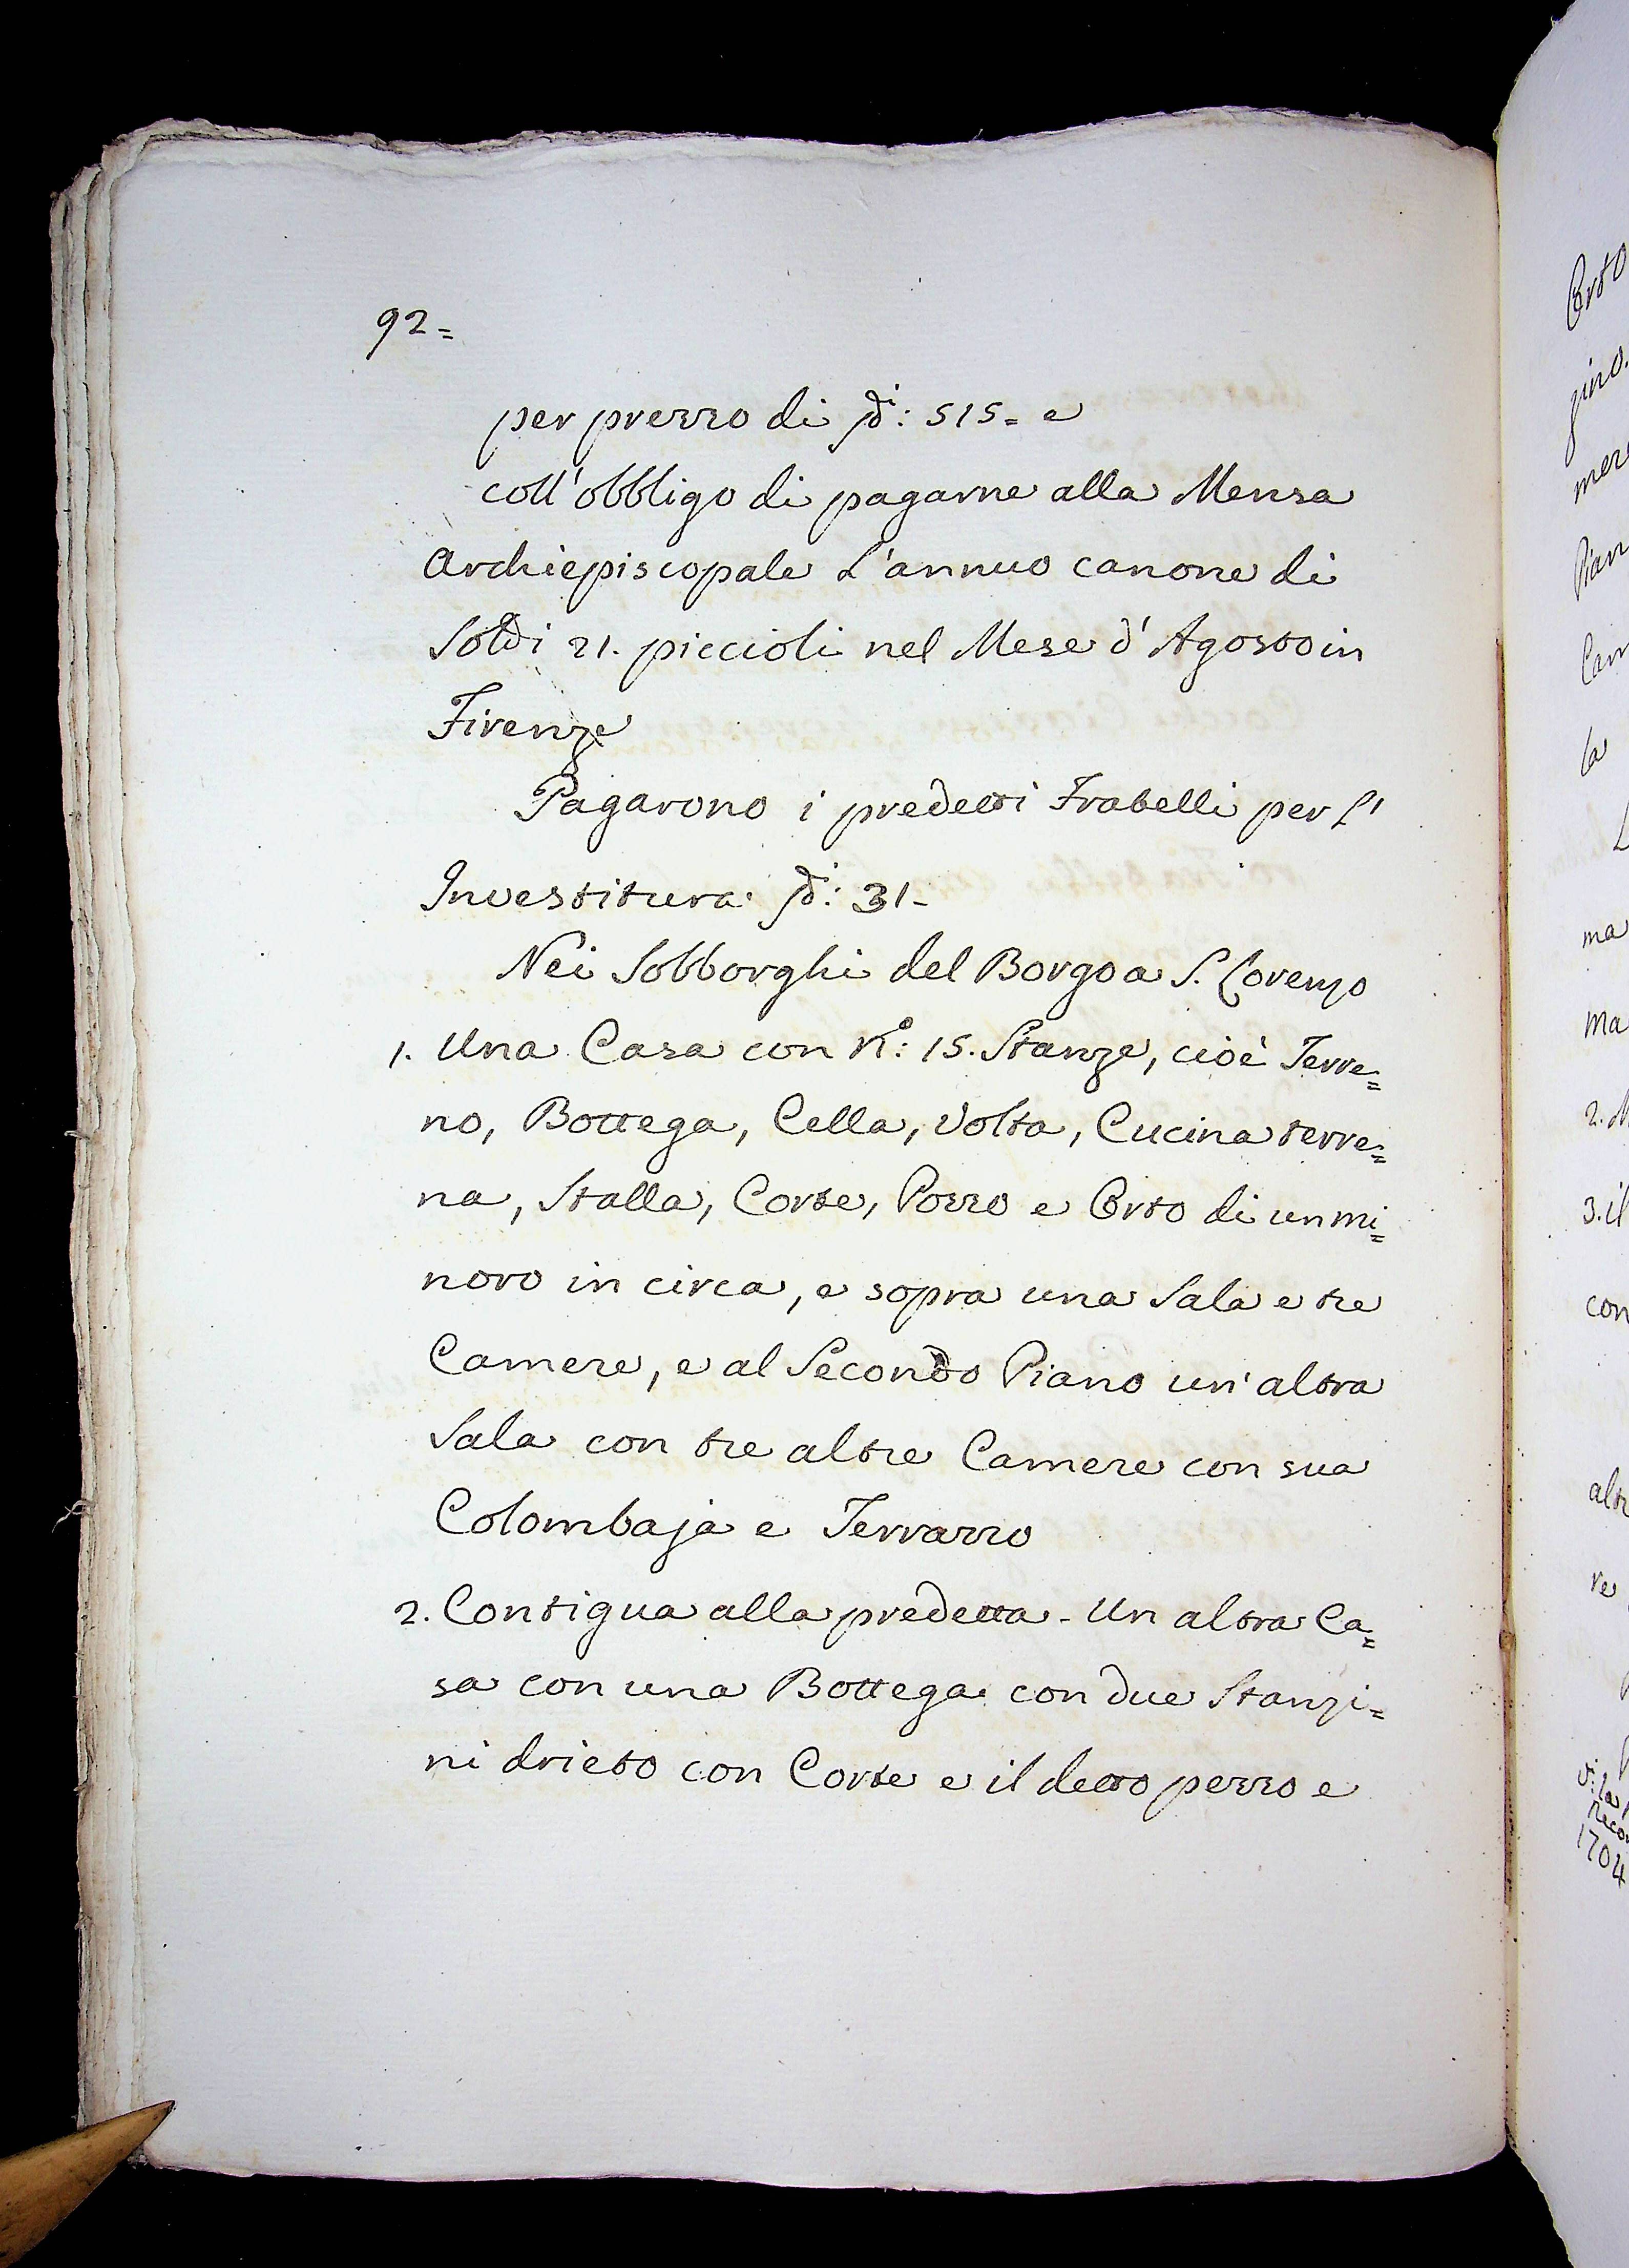 92=
per prezzo di ₰di: 515= e
coll'obbligo di pagarne alla Mensa
Archiepiscopale L'annuo canone di
Soldi 21. piccioli nel Mese d'Agosto in
Firenze
Pagarono i predetti Fratelli per l'
Investitura ₰di: 31-
Nei Sobborghi del Borgo a S. Lorenzo
1. Una Casa con N.o: 15. Stanze, cioè Terre=
no, Bottega, Cella, Volta, Cucina terre=
na, Stalla, Corte, Pozzo e Orto di un mi=
noro in circa, e sopra una Sala e tre
Camere, e al Secondo Piano un'altra
Sala con tre altre Camere con sua
Colombaja e Terrazzo
2. Contigua alla predetta - Un altra Ca=
sa con una Bottega con due Stanzi=
ni drieto con Corte e il detto pezzo e
ma
ma
3. il
con
1704